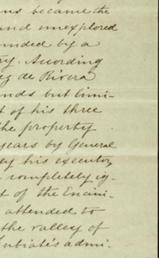 ons became the
and unexplored
ounded by a
ry. According
ez de Rivera
nds but limi-
t of his three
he property
years by General
ey his executor
completely ig-
t of the Encini-
attended to
the valley of
admi-